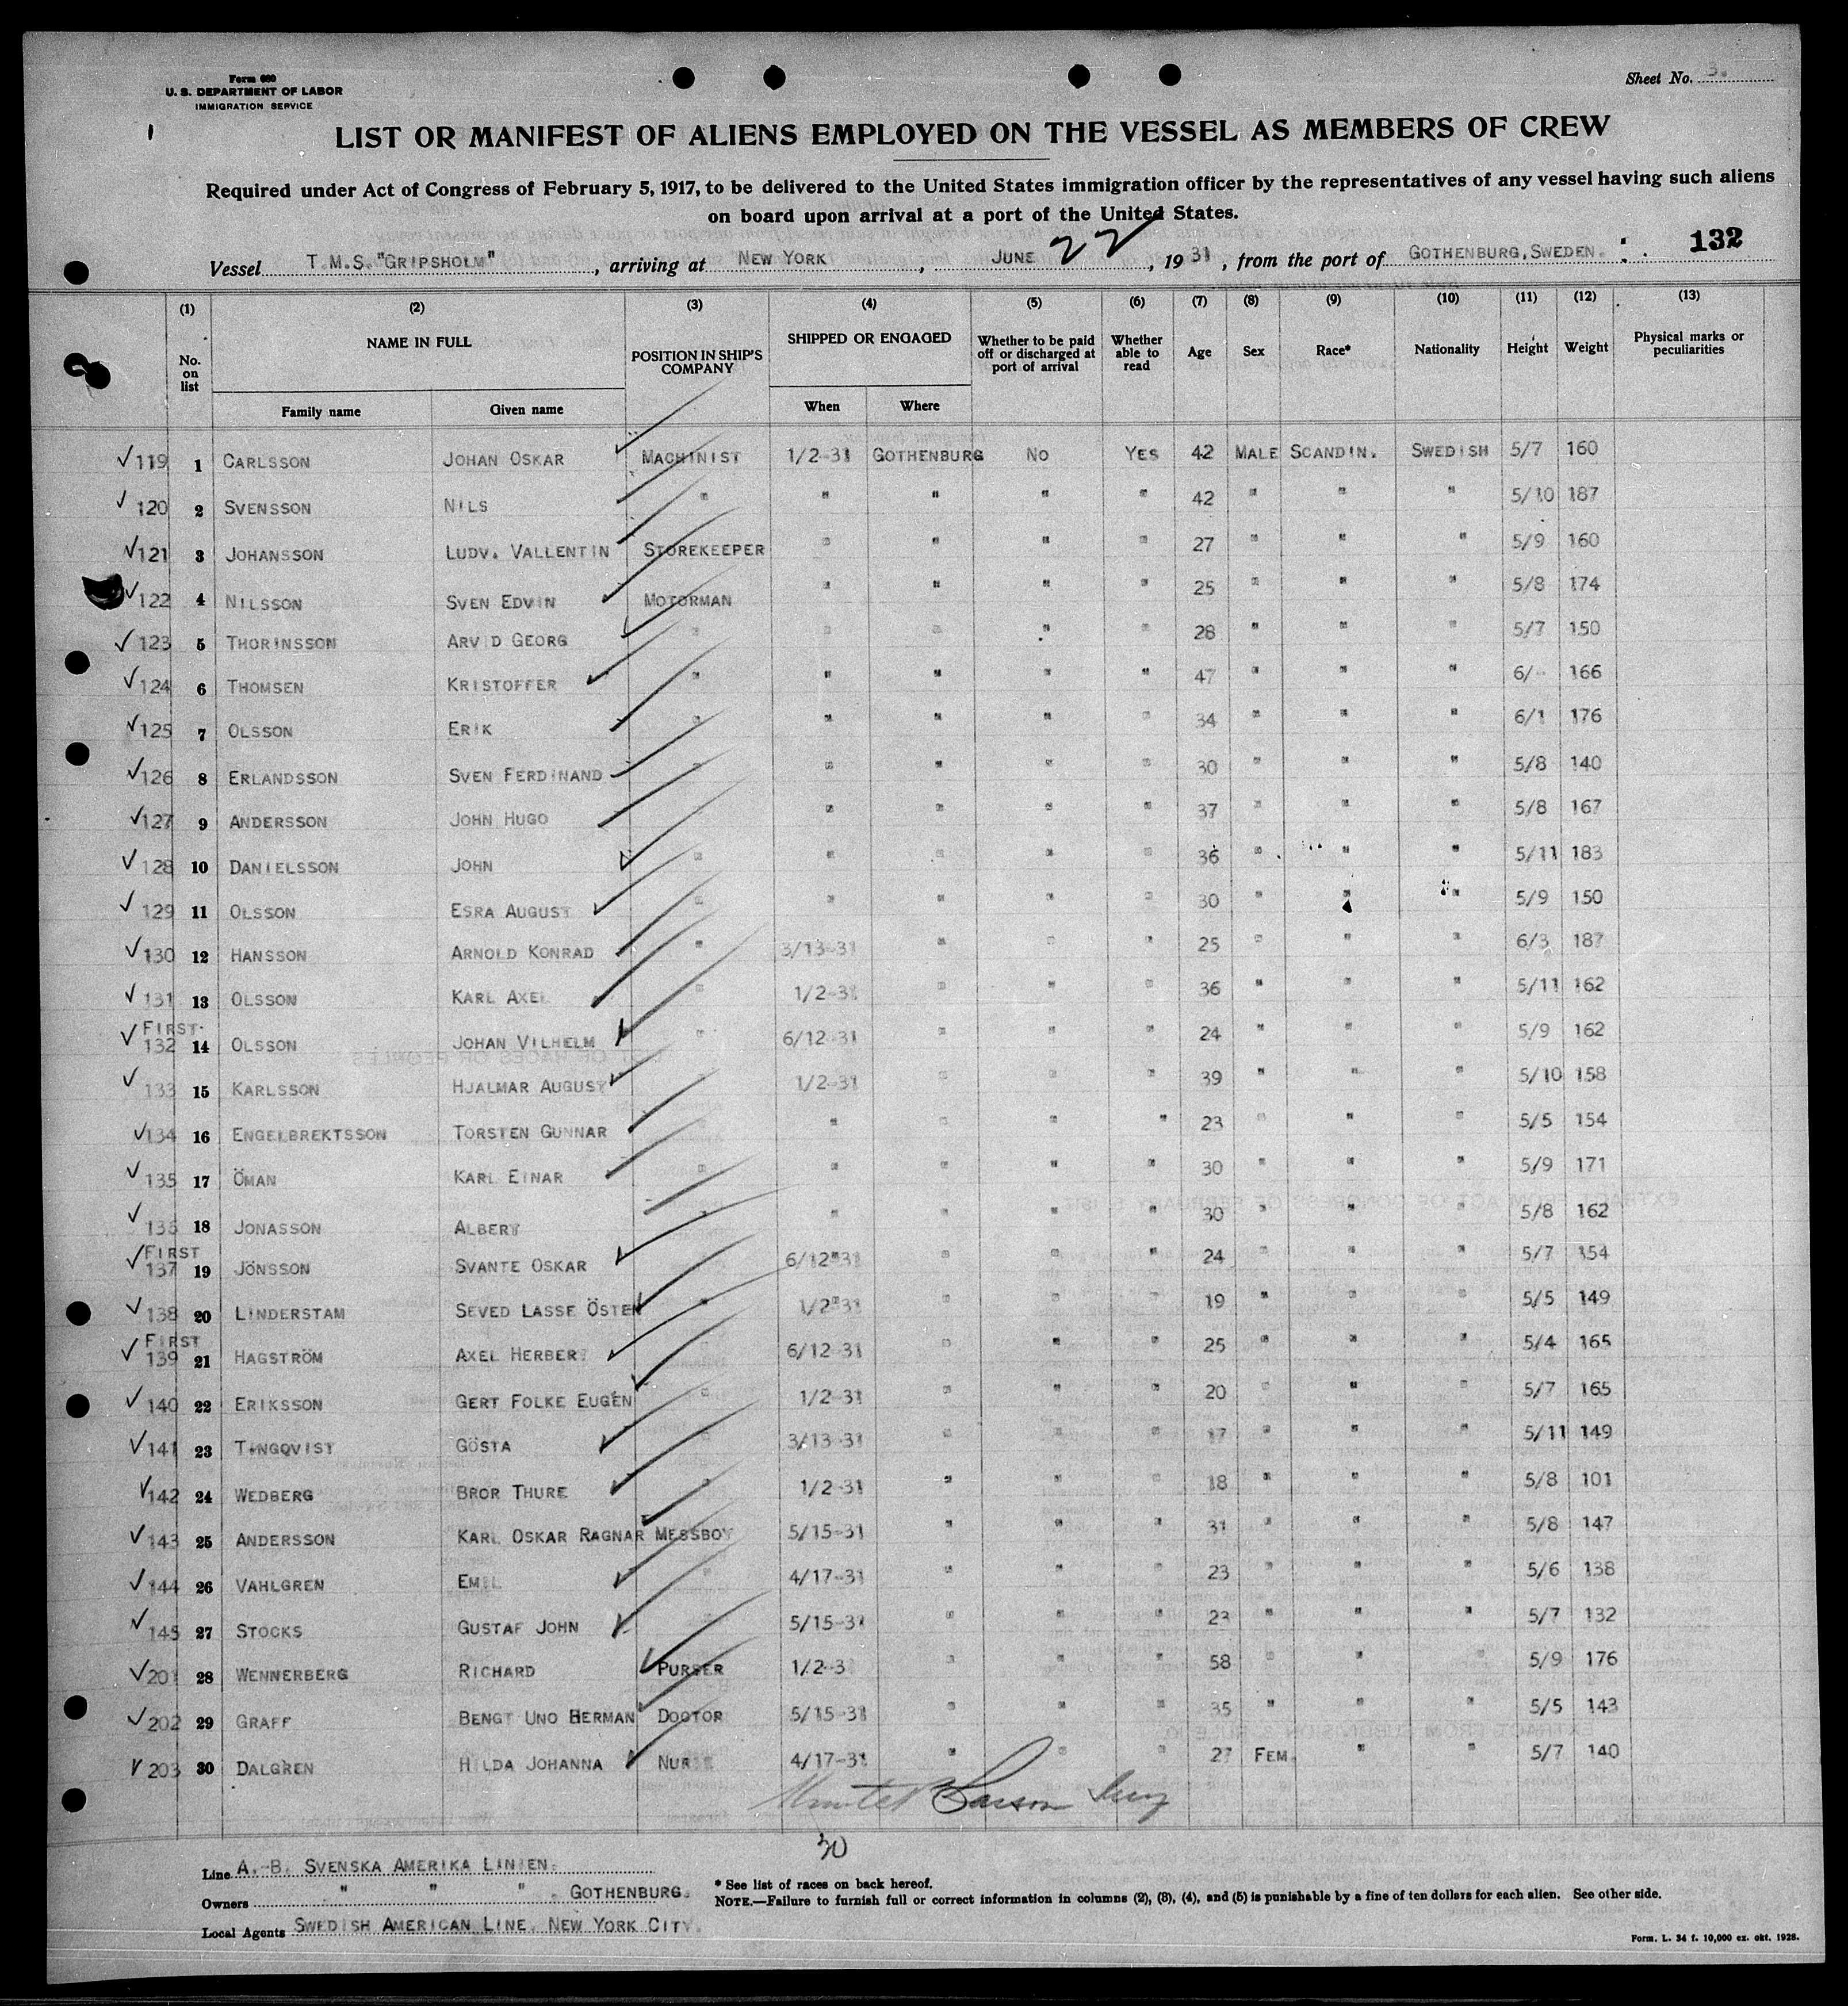 Form 680
U. S. DEPARTMENT OF LABOR
IMMIGRATION SERVICE
Sheet No. 3.
LIST OR MANIFEST OF ALIENS EMPLOYED ON THE VESSEL AS MEMBERS OF CREW
Required under Act of Congress of February 5, 1917, to be delivered to the United States immigration officer by the representatives of any vessel having such aliens
on board upon arrival at a port of the United States.
Vessel T.M.S. "GRIPSHOLM", arriving at NEW YORK, JUNE 22, 1931, from the port of GOTHENBURG, SWEDEN. 132
(1) (2) (3) (4) (5) (6) (7) (8) (9) (10) (11) (12) (13)
No. on list NAME IN FULL POSITION IN SHIP'S COMPANY SHIPPED OR ENGAGED Whether to be paid off or discharged at port of arrival Whether able to read Age Sex Race* Nationality Height Weight Physical marks or peculiarities
Family name Given name When Where
119 1 CARLSSON JOHAN OSKAR MACHINIST 1/2-31 GOTHENBURG NO YES 42 MALE SCANDIN. SWEDISH 5/7 160
120 2 SVENSSON NILS " " " " " 42 " " " 5/10 187
121 3 JOHANSSON LUDV. VALLENTIN STOREKEEPER " " " " 27 " " " 5/9 160
122 4 NILSSON SVEN EDVIN MOTORMAN " " " " 25 " " " 5/8 174
123 5 THORINSSON ARVID GEORG " " " " " 28 " " " 5/7 150
124 6 THOMSEN KRISTOFFER " " " " " 47 " " " 6/- 166
125 7 OLSSON ERIK " " " " " 34 " " " 6/1 176
126 8 ERLANDSSON SVEN FERDINAND " " " " " 30 " " " 5/8 140
127 9 ANDERSSON JOHN HUGO " " " " " 37 " " " 5/8 167
128 10 DANIELSSON JOHN " " " " " 36 " " " 5/11 183
129 11 OLSSON ESRA AUGUST " " " " " 30 " " " 5/9 150
130 12 HANSSON ARNOLD KONRAD " 3/13-31 " " " 25 " " " 6/3 187
131 13 OLSSON KARL AXEL " 1/2-31 " " " 36 " " " 5/11 162
FIRST
132 14 OLSSON JOHAN VILHELM " 6/12-31 " " " 24 " " " 5/9 162
133 15 KARLSSON HJALMAR AUGUST " 1/2-31 " " " 39 " " " 5/10 158
134 16 ENGELBREKTSSON TORSTEN GUNNAR " " " " " 23 " " " 5/5 154
135 17 ÖMAN KARL EINAR " " " " " 30 " " " 5/9 171
136 18 JONASSON ALBERT " " " " " 30 " " " 5/8 162
FIRST
137 19 JÖNSSON SVANTE OSKAR " 6/12-31 " " " 24 " " " 5/7 154
138 20 LINDERSTAM SEVED LASSE ÖSTEN " 1/2-31 " " " 19 " " " 5/5 149
FIRST
139 21 HAGSTRÖM AXEL HERBERT " 6/12-31 " " " 25 " " " 5/4 165
140 22 ERIKSSON GERT FOLKE EUGEN " 1/2-31 " " " 20 " " " 5/7 165
141 23 TINGQVIST GÖSTA " 3/13-31 " " " 17 " " " 5/11 149
142 24 WEDBERG BROR THURE " 1/2-31 " " " 18 " " " 5/8 101
143 25 ANDERSSON KARL OSKAR RAGNAR MESSBOY 5/15-31 " " " 31 " " " 5/8 147
144 26 VAHLGREN EMIL " 4/17-31 " " " 23 " " " 5/6 138
145 27 STOCKS GUSTAF JOHN " 5/15-31 " " " 23 " " " 5/7 132
201 28 WENNERBERG RICHARD PURSER 1/2-3 " " " 58 " " " 5/9 176
202 29 GRAFF BENGT UNO HERMAN DOCTOR 5/15-31 " " " 35 " " " 5/5 143
203 30 DALGREN HILDA JOHANNA NURSE 4/17-31 " " " 27 FEM. " " 5/7 140
30
Line A.-B. SVENSKA AMERIKA LINIEN.
Owners " " " . GOTHENBURG.
Local Agents SWEDISH AMERICAN LINE. NEW YORK CITY.
* See list of races on back hereof.
NOTE.—Failure to furnish full or correct information in columns (2), (3), (4), and (5) is punishable by a fine of ten dollars for each alien. See other side.
Form. L. 34 f. 10,000 ex. okt. 1928.